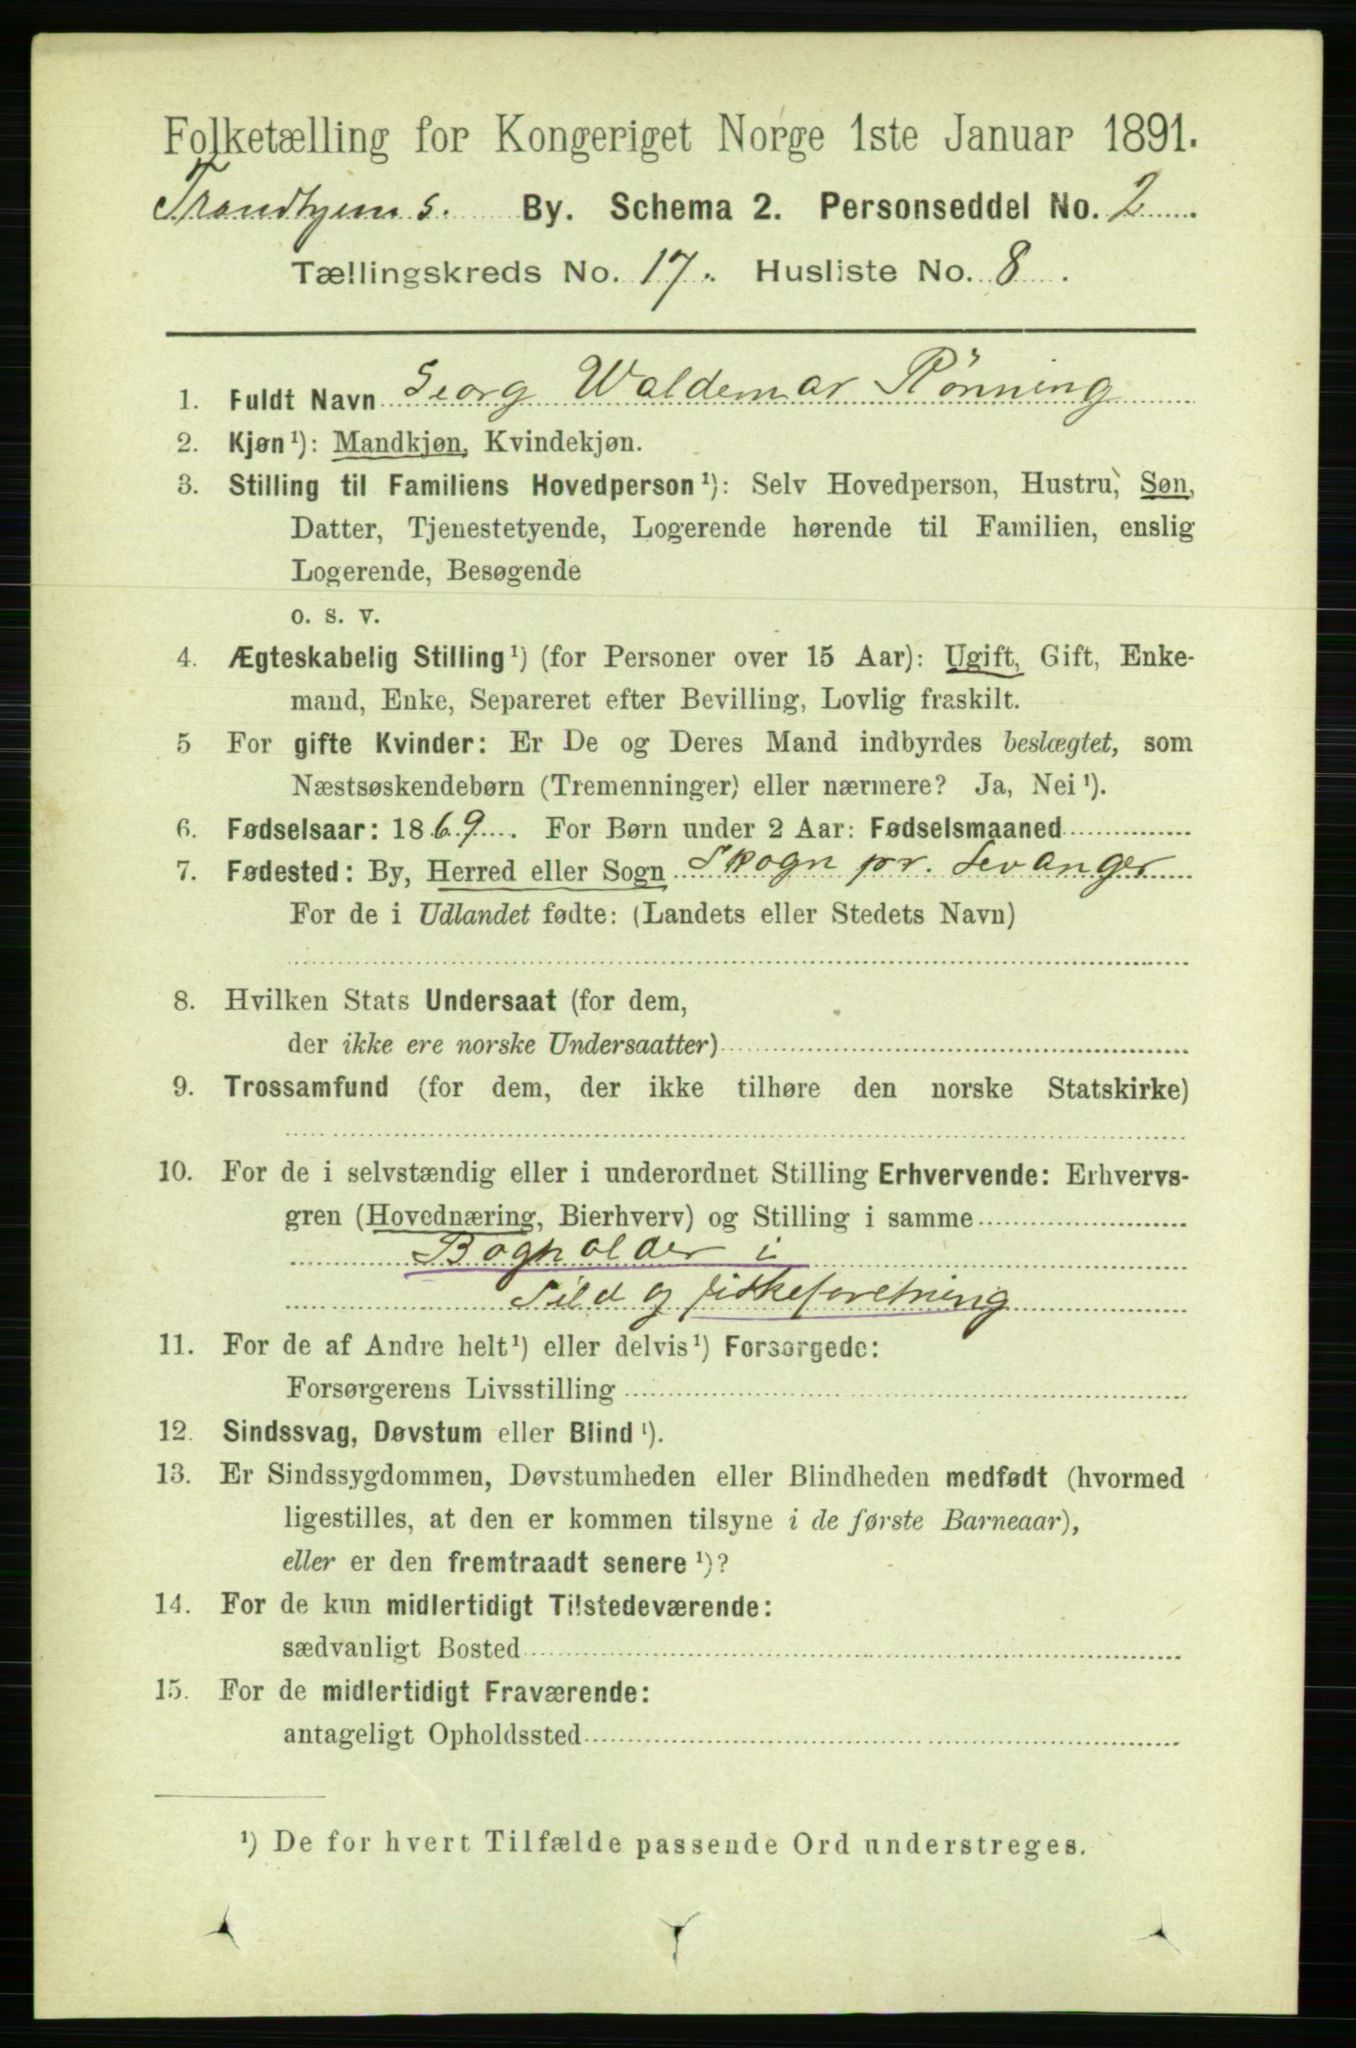 Folketælling for Kongeriget Norge 1ste Januar 1891.
Trondhjems. By. Schema 2. Personseddel No. 2
Tællingskreds No. 17. Husliste No. 8.
1. Fuldt Navn Georg Waldemar Rönning
2. Kjøn¹): Mandkjøn, Kvindekjøn.
3. Stilling til Familiens Hovedperson¹): Selv Hovedperson, Hustru, Søn,
Datter, Tjenestetyende, Logerende hørende til Familien, enslig
Logerende, Besøgende
o. s. v.
4. Ægteskabelig Stilling¹) (for Personer over 15 Aar): Ugift, Gift, Enke-
mand, Enke, Separeret efter Bevilling, Lovlig fraskilt.
5 For gifte Kvinder: Er De og Deres Mand indbyrdes beslægtet, som
Næstsøskendebørn (Tremenninger) eller nærmere? Ja, Nei¹).
6. Fødselsaar: 1869. For Børn under 2 Aar: Fødselsmaaned
7. Fødested: By, Herred eller Sogn Skogn pr. Levanger
For de i Udlandet fødte: (Landets eller Stedets Navn)
8. Hvilken Stats Undersaat (for dem,
der ikke ere norske Undersaatter)
9. Trossamfund (for dem, der ikke tilhøre den norske Statskirke)
10. For de i selvstændig eller i underordnet Stilling Erhvervende: Erhvervs-
gren (Hovednæring, Bierhverv) og Stilling i samme
Bogholder i
Sild og fiskeforetning
11. For de af Andre helt¹) eller delvis¹) Forsørgede:
Forsørgerens Livsstilling
12. Sindssvag, Døvstum eller Blind¹).
13. Er Sindssygdommen, Døvstumheden eller Blindheden medfødt (hvormed
ligestilles, at den er kommen tilsyne i de første Barneaar),
eller er den fremtraadt senere¹)?
14. For de kun midlertidigt Tilstedeværende:
sædvanligt Bosted
15. For de midlertidigt Fraværende:
antageligt Opholdssted
¹) De for hvert Tilfælde passende Ord understreges.